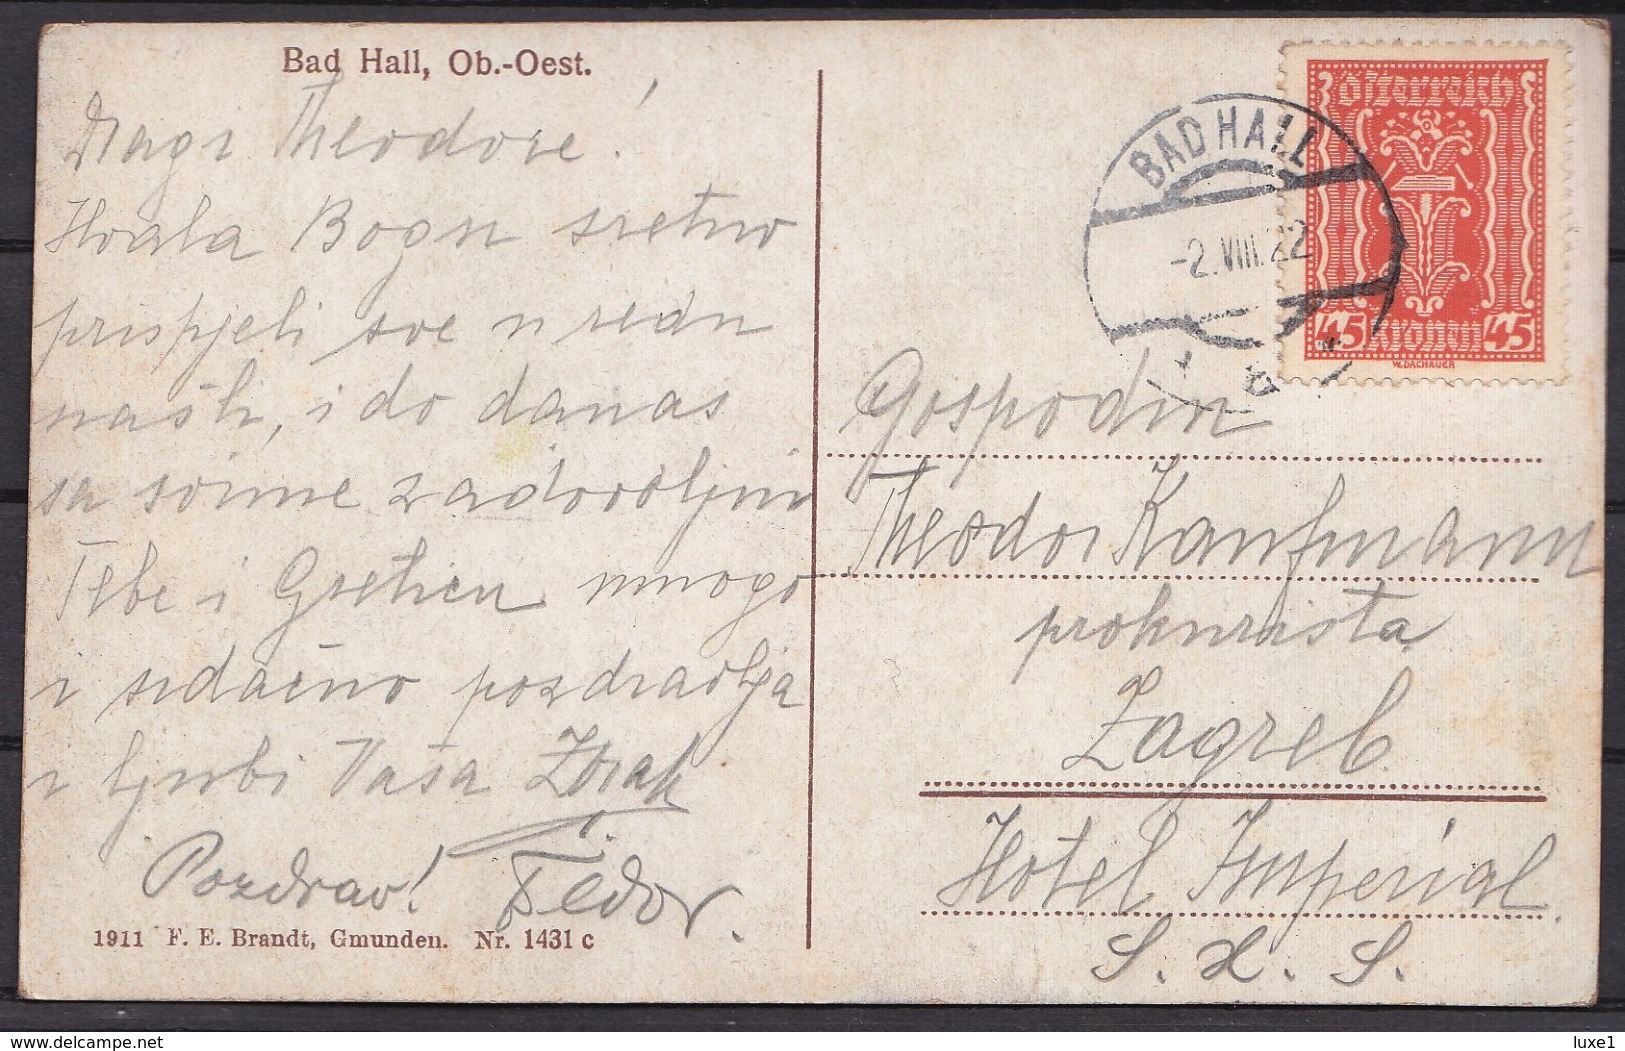 Bad Hall, Ob.-Oest.
Dragi Theodore!
Hvala Bogu sretno
prispjeli sve u redu
našli, i do danas
sa svime zadovoljni
Tebe i Gretien mnogo
i srdačno pozdravlja
i ljubi Vaša Zdrak
Pozdrav! Fedor.
1911 F. E. Brandt, Gmunden. Nr. 1431 c
BAD HALL
-2.VIII.22
Österreich
45 Kronen 45
W.DACHAUER
Gospodin
Theodor Kaufmann
prokurista
Zagreb
Hotel Imperial
S. H. S.
luxe1
delcampe.net